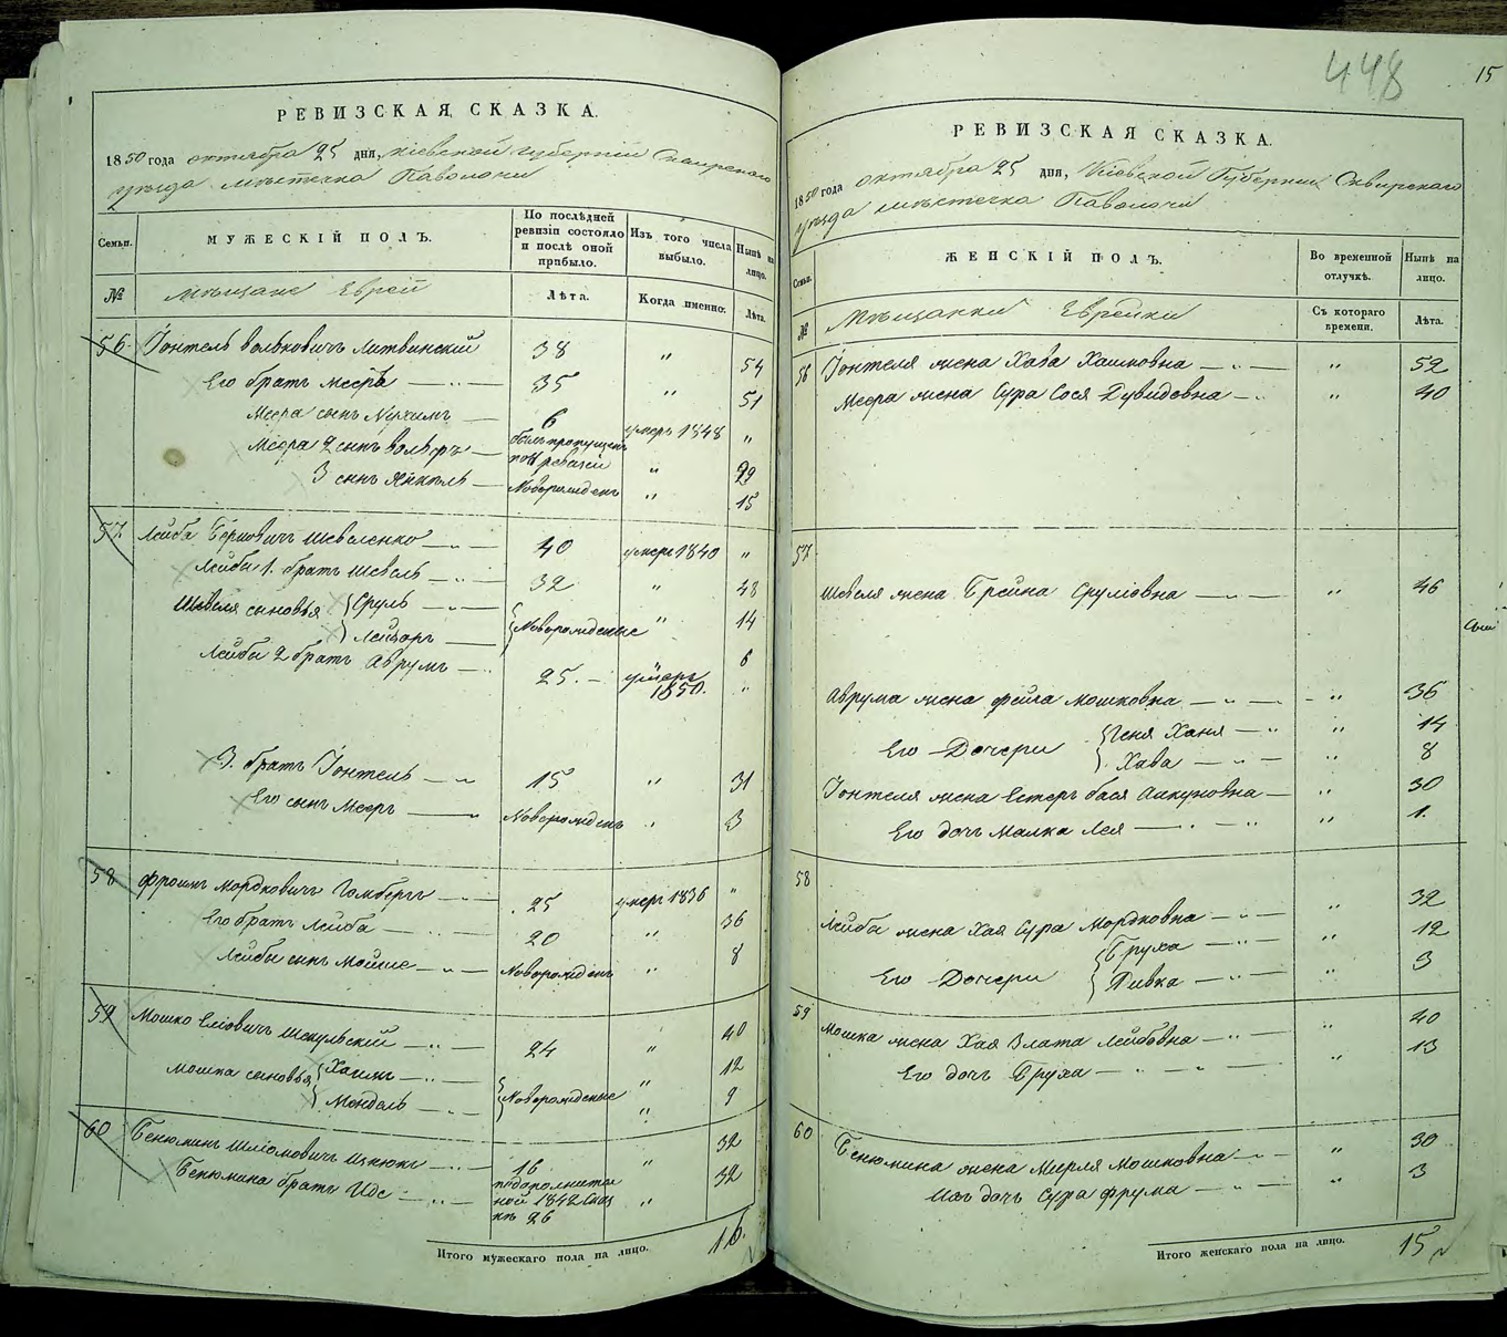 РЕВИЗСКАЯ СКАЗКА.
1850 года октября 25 дня, Кіевской Губерніи Сквирскаго
уезда местечка Паволочи
Семьи.
МУЖЕСКІЙ ПОЛЪ.
По послѣдней ревизіи состояло и послѣ оной прибыло.
Изъ того числа выбыло.
Нынѣ на лицо.
№
Мещане Евреи
Лѣта.
Когда именно.
Лѣта.
56. Іонтель Вольковичъ Литвинскій 38 " 54
Его братъ Мееръ — " — 35 " 51
Меера сынъ Нухимъ — 6 умеръ 1848 "
Меера 2 сынъ Вольфъ — былъ пропущенъ по ревизіи " 29
3 сынъ Янкель — Новорожденъ " 15
57 Лейба Беріовичъ Шевеленко — " — 40 умеръ 1840 "
Лейбы 1. братъ Шевель — " — 32 " 48
Шевеля сыновья { Сруль — " — { Новорожденые " 14
{ Лейзоръ — 6
Лейбы 2 братъ Аврумъ — 25. — умеръ 1850. "
3. братъ Іонтель — " 15 " 31
Его сынъ Мееръ — " Новорожденъ " 3
58 Фроимъ Мордковичъ Гомбергъ — " — 25 умеръ 1836 "
Его братъ Лейба — 20 " 36
Лейбы сынъ Мойше — " — Новорожденъ " 8
59 Мошко Еліовичъ — " — 24 " 40
Мошка сыновья { Хаимъ — " — { Новорожденые " 12
{ Мендель — " — " 9
60 Бенюминъ Шліомовичъ — " — 16 " 32
Бенюмина братъ Идс — " — по дополнительной 1842 сказкѣ 26 " 32
Итого мужескаго пола на лицо. 16.
448
15
РЕВИЗСКАЯ СКАЗКА.
1850 года октября 25 дня, Кіевской Губерніи Сквирскаго
уезда местечка Паволочи
Семьи.
ЖЕНСКІЙ ПОЛЪ.
Во временной отлучкѣ.
Нынѣ на лицо.
№
Мещанки Еврейки
Съ котораго времени.
Лѣта.
56 Іонтеля жена Хава Хаимовна — " — " 52
Меера жена Сура Сося Дувидовна — " " 40
57
Шевеля жена Брейна Сруліовна — " — " 46
Аврума жена Фейга Мошковна — " — " 36
Его Дочери { Геня Ханя — " " 14
{ Хава — " — " 8
Іонтеля жена Естеръ Бася — " 30
Его дочь Малка Лея — " — " " 1.
58
Лейбы жена Хая Сура Мордковна — " — " 32
Его Дочери { Бруха — " — " 12
{ Ривка — " — " 3
59 Мошка жена Хая Злата Лейбовна — " — " 40
Его дочь Бруха — " — " — " 13
60 Бенюмина жена Мирля Мошковна — " " 30
Ихъ дочь Сура Фрума — " — " 3
Итого женскаго пола на лицо. 15